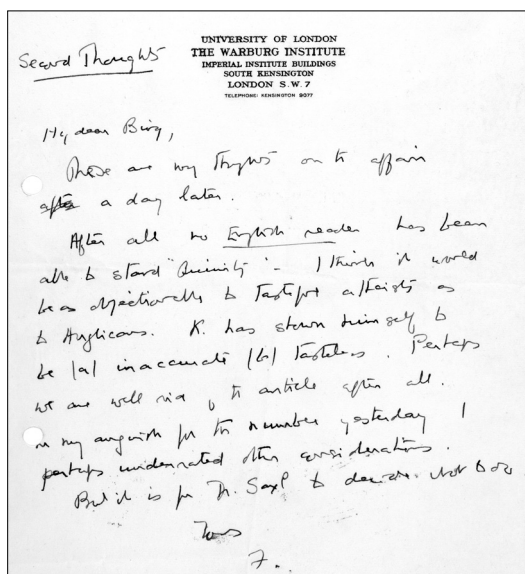 Second Thoughts
UNIVERSITY OF LONDON
THE WARBURG INSTITUTE
IMPERIAL INSTITUTE BUILDINGS
SOUTH KENSINGTON
LONDON S.W. 7
TELEPHONE: KENSINGTON 9077
My dear Bing,
These are my thoughts on the affair
a day later.
After all no English reader has been
able to stand "Quiminity". I think it would
be as objectionable to tasteful atheists as
to Anglicans. K. has shown himself to
be (a) inaccurate (b) tasteless. Perhaps
we are well rid of the article after all.
In my anguish for the number yesterday I
perhaps underrated other considerations.
But it is for Dr. Saxl to decide. Not to
Yours
F.